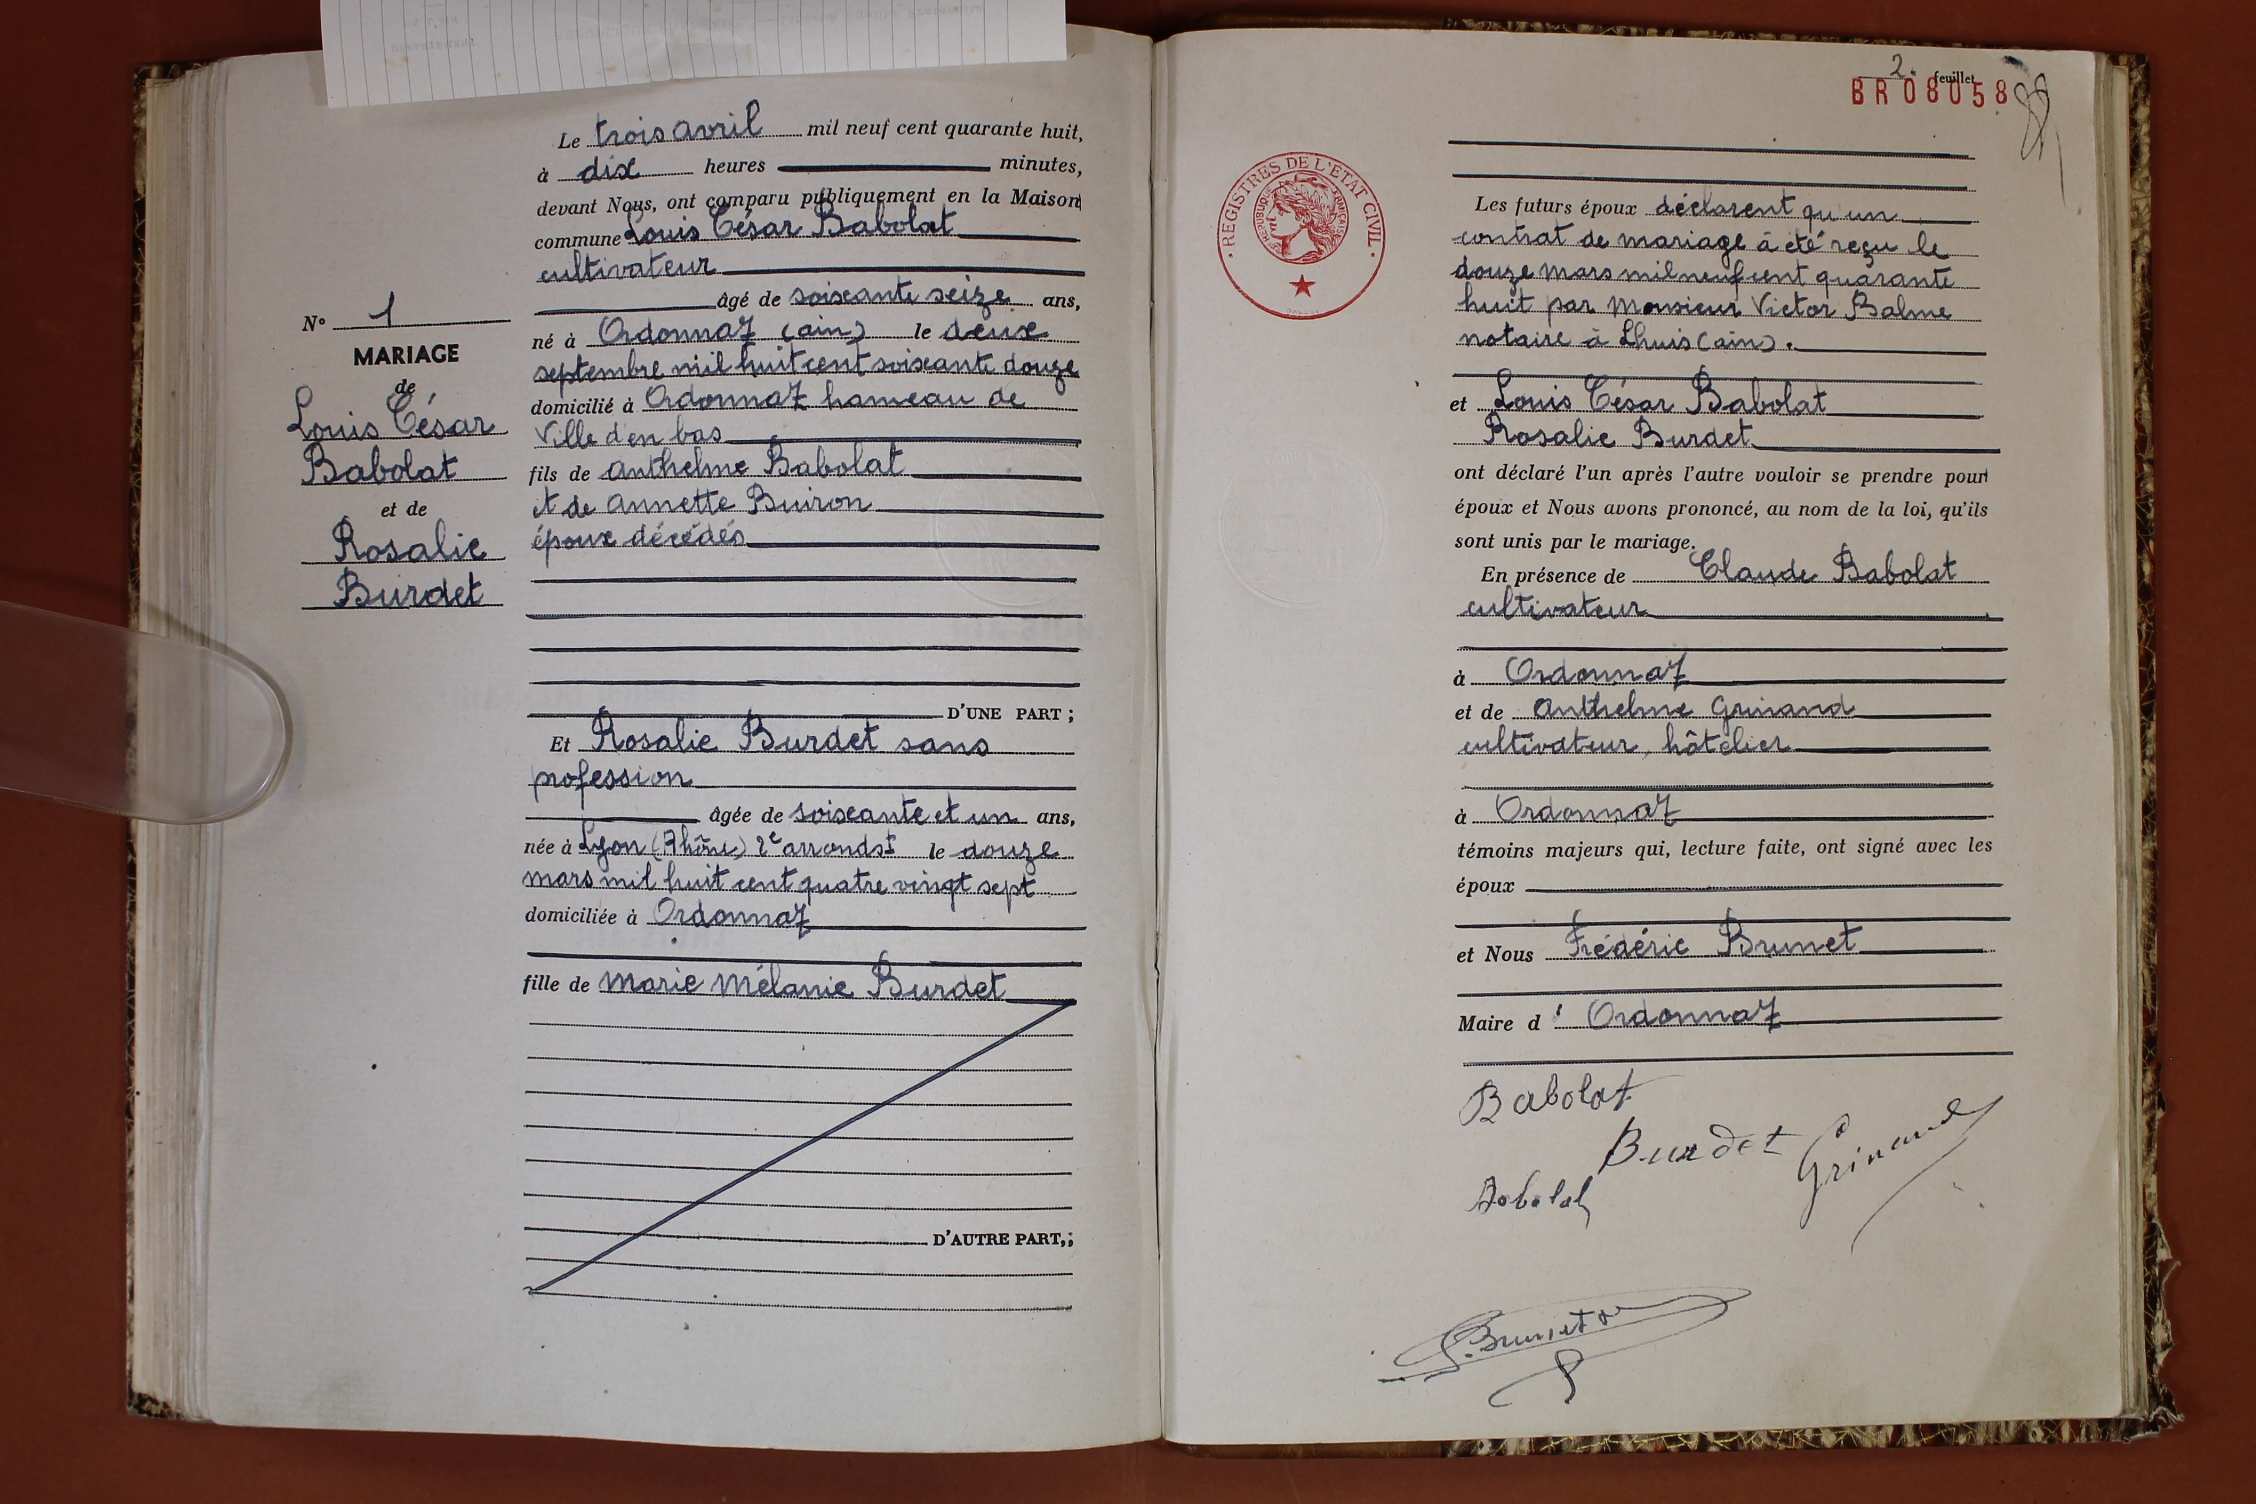 Le trois avril mil neuf cent quarante huit,
à dix heures minutes,
devant Nous, ont comparu publiquement en la Maison
commune Louis César Babolat
cultivateur
âgé de soixante seize ans,
né à Ordonnaz (ain) le deux
septembre mil huit cent soixante douze
domicilié à Ordonnaz hameau de
Ville d'en bas
fils de anthelme Babolat
et de annette Buiron
époux décédés
D'UNE PART ;
Et Rosalie Burdet sans
profession
âgée de soixante et un ans,
née à Lyon (Rhône) 2e arrondst le douze
mars mil huit cent quatre vingt sept
domiciliée à Ordonnaz
fille de marie mélanie Burdet
D'AUTRE PART,;
N° 1
MARIAGE
de
Louis César
Babolat
et de
Rosalie
Burdet
2. feuillet
BR08058
REGISTRES DE L'ETAT CIVIL
REPUBLIQUE FRANÇAISE
Les futurs époux déclarent qu'un
contrat de mariage à été reçu le
douze mars mil neuf cent quarante
huit par Monsieur Victor Balme
notaire à Lhuis (ain).
et Louis César Babolat
Rosalie Burdet
ont déclaré l'un après l'autre vouloir se prendre pour
époux et Nous avons prononcé, au nom de la loi, qu'ils
sont unis par le mariage.
En présence de Claude Babolat
cultivateur
à Ordonnaz
et de anthelme Grinand
cultivateur, hôtelier
à Ordonnaz
témoins majeurs qui, lecture faite, ont signé avec les
époux
et Nous Frédéric Brunet
Maire d' Ordonnaz
Babolat
Burdet
Grinand
Babolat
F. Brunet